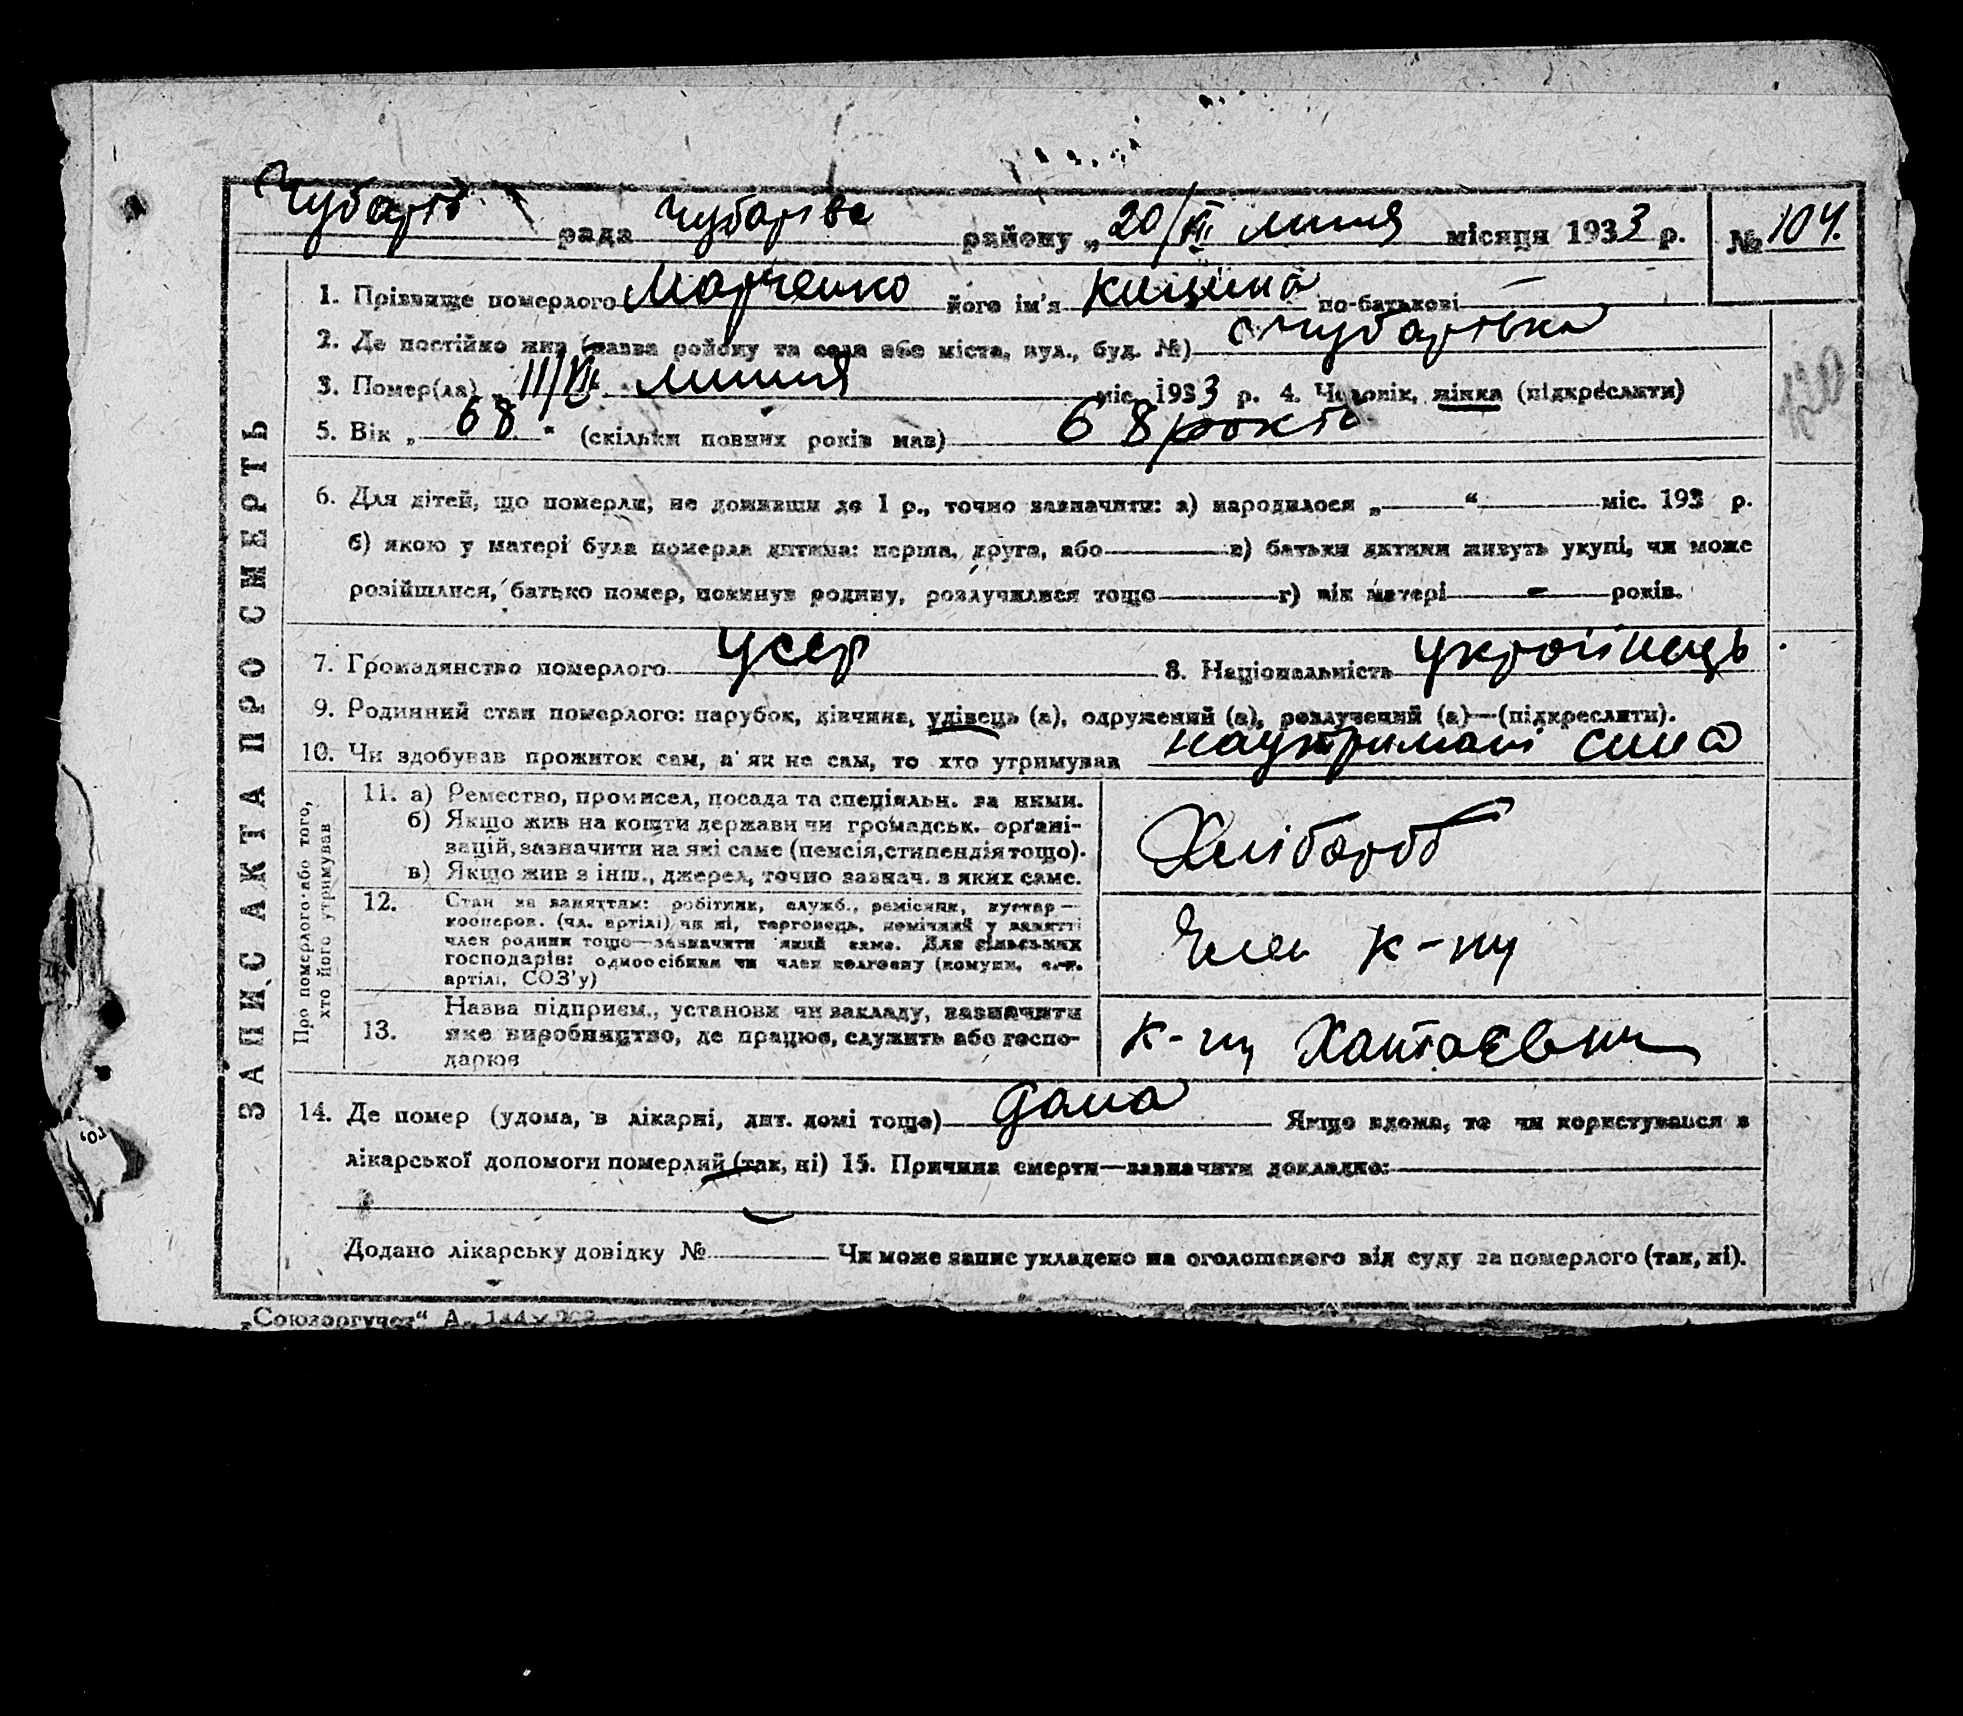 Чубарів рада Чубарівс району „20/VII липня місяця 1933 р. № 104.
ЗАПИС АКТА ПРО СМЕРТЬ
1. Прізвище померлого Марченко його ім'я по-батькові —
2. Де постійно жив (назва району та села або міста, вул., буд. №) с Чубарівка
3. Помер(ла) „11/VII“ липня міс. 1933 р. 4. Чоловік, жінка (підкреслити)
5. Вік „68“ (скільки повних років мав) 68 років
6. Для дітей, що померли, не доживши до 1 р., точно зазначити: а) народилося „——“——міс. 193 р.
б) якою у матері була померла дитина: перша, друга, або——в) батьки дитини живуть укупі, чи може
розійшлися, батько помер, покинув родину, розлучилися тощо——г) вік матері——років.
7. Громадянство померлого УССР 8. Національність українець
9. Родинний стан померлого: парубок, дівчина, удівець (а), одружений (а), розлучений (а)—(підкреслити).
10. Чи здобував прожиток сам, а як не сам, то хто утримував на утримані сина
Про померлого або того,
хто його утримував
11. а) Ремество, промисел, посада та спеціяльн. за ними.
б) Якщо жив на кошти держави чи громадськ. орґані-
зацій, зазначити на які саме (пенсія, стипендія тощо).
в) Якщо жив з інш., джерел, точно зазнач. з яких саме.
Хлібороб
12. Стан за заняттям: робітник, служб., ремісник, кустар—
кооперов. (чл. артілі) чи ні, торговець, помічний у занятті
член родини тощо—зазначити який саме. Для сільських
господарів: одноосібник чи член колгоспу (комуни, с.-г.
артілі, СОЗ'у)
Член к-пу
13. Назва підприєм., установи чи закладу, зазначити
яке виробництво, де працює, служить або госпо-
дарює
к-пу
14. Де помер (удома, в лікарні, дит. домі тощо) дома Якщо вдома, то чи користувався з
лікарської допомоги померлий (так, ні) 15. Причина смерти—зазначити докладно:
Додано лікарську довідку №—— Чи може запис укладено на оголошеного від суду за померлого (так, ні).
„Союзоргучет“ А.